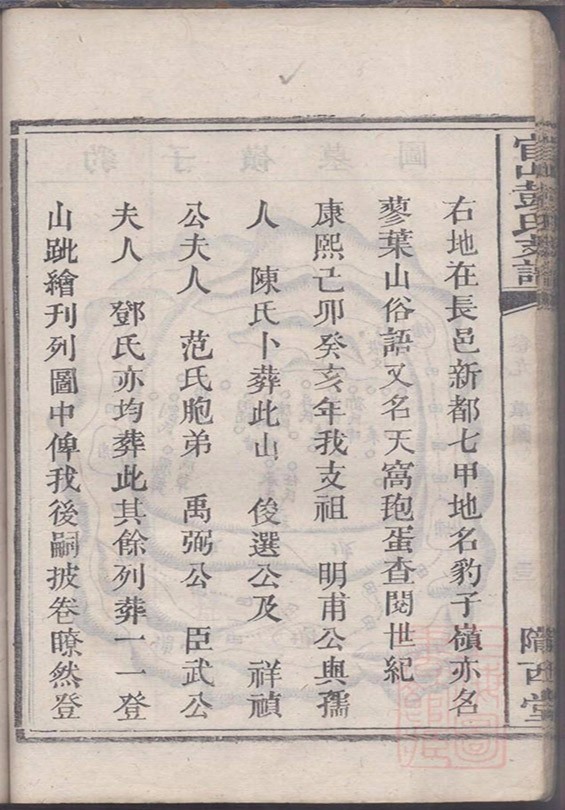 官山彭氏支譜
隴西堂
右地在長邑新都七甲地名豹子嶺亦名
蓼葉山俗語又名天窩玸蛋查閱世紀
康熙己卯癸亥年我支祖 明甫公與孺
人 陳氏卜葬此山 俊選公及 祥禎
公夫人 范氏胞弟 禹弼公 臣武公
夫人 鄧氏亦均葬此其餘列葬一一登
山跐繪刊列圖中俾我後嗣披卷暸然登
圖墓嶺子豹